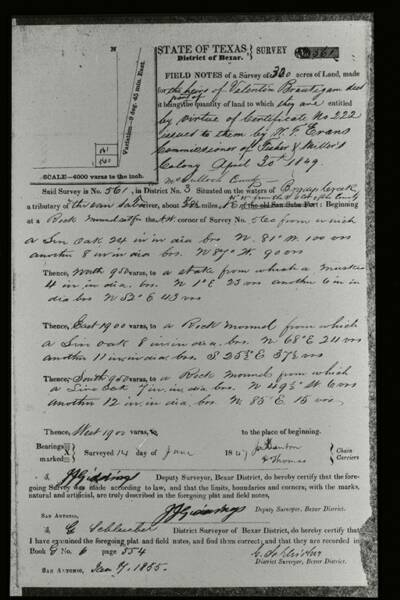 STATE OF TEXAS,
District of Bexar.
SURVEY
561
N
Variation—9 deg. 45 min. East.
561
560
SCALE—4000 varas to the inch.
FIELD NOTES of a Survey of 320 acres of Land, made
for the heirs of Valentin Brautigam decd
it being part of the quantity of land to which they are entitled
by virtue of Certificate No 222
issued to them by
Commissioner of Fisher & Miller's
Colony April 20th 1849.
McCulloch County
Said Survey is No. 561, in District No. 3 Situated on the waters of
a tributary of the San Saba river, about miles of the old San Saba Fort: Beginning
at a Rock Mound for the corner of Survey No. 560 from which
a Live Oak 24 in in dia brs. N. 81° W. 100 vrs
another 8 in in dia brs. N 87° W. 90 vrs
Thence, North 950 varas, to a stake from which a
4 in in dia. brs. N 1° E 23 vrs another 6 in in
dia brs N 52° E 43 vrs
Thence, East 1900 varas, to a Rock Mound from which
a Live Oak 8 in in dia. brs. N 68° E 24 vrs
another 11 in in dia brs. S 25½° E 37½ vrs
Thence, South 950 varas, to a Rock Mound from which
a Live Oak 7 in in dia brs. N 49½° W. 6 vrs
another 12 in in dia. brs. N 85° E 15 vrs
Thence, West 1900 varas, to the place of beginning.
Bearings marked X Surveyed 14 day of June 18
Chain Carriers
Thomas
I, Deputy Surveyor, Bexar District, do hereby certify that the fore-
going Survey was made according to law, and that the limits, boundaries and corners, with the marks,
natural and artificial, are truly described in the foregoing plat and field notes.
San Antonio, Deputy Surveyor, Bexar District.
I, G. Schleicher District Surveyor of Bexar District, do hereby certify that
I have examined the foregoing plat and field notes, and find them correct; and that they are recorded in
Book No. 6 page 554
G. Schleicher
District Surveyor, Bexar District.
San Antonio, 1855.